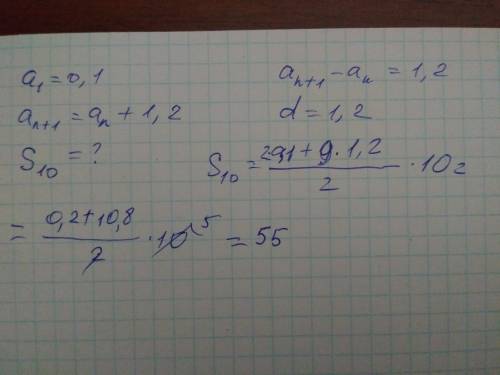 a₁ = 0,1
aₙ₊₁ = aₙ + 1,2
S₁₀ = ?
aₙ₊₁ − aₙ = 1,2
d = 1,2
S₁₀ = (2·0,1 + 9·1,2)/2 · 10 =
= (0,2 + 10,8)/2 · 10 5 = 55